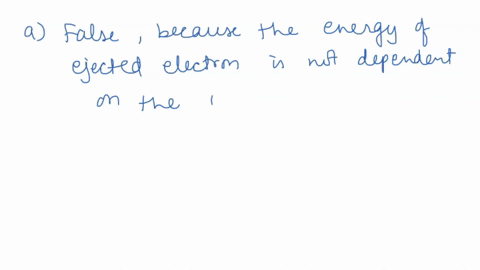 a) False, because the energy of
ejected electron is not dependent
on the